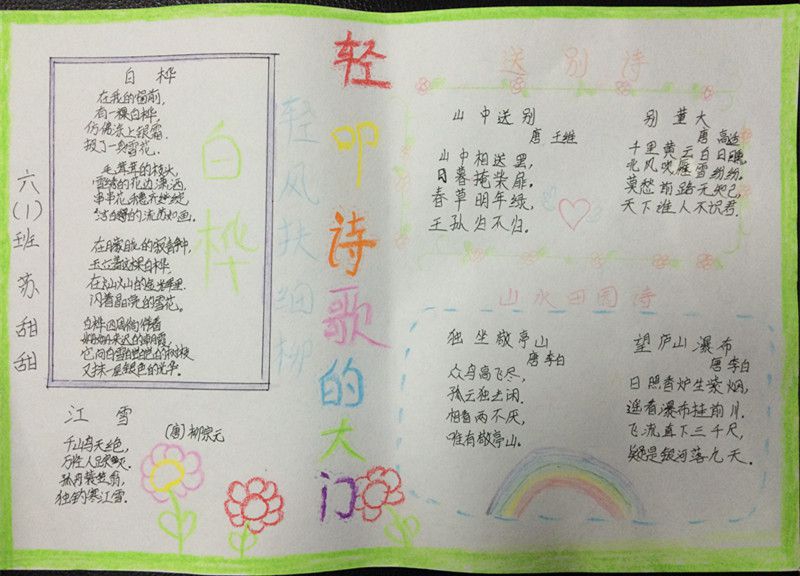 六(1)班 苏甜甜
白桦
在我的窗前,
有一棵白桦,
仿佛涂上银霜,
披了一身雪花。
毛茸茸的枝头,
雪绣的花边潇洒,
串串花穗齐绽,
洁白的流苏如画。
在朦胧的寂静中,
玉立着这棵白桦,
在灿灿的金晖里
闪着晶亮的雪花。
白桦四周徜徉着
姗姗来迟的朝霞,
它向白雪皑皑的树枝
又抹一层银色的光华。
白桦
江雪
(唐)柳宗元
千山鸟飞绝,
万径人踪灭。
孤舟蓑笠翁,
独钓寒江雪.
轻风扶细柳
轻叩诗歌的大门
送别诗
山中送别
唐 王维
山中相送罢,
日暮掩柴扉。
春草明年绿,
王孙归不归.
别董大
唐 高适
千里黄云白日曛,
北风吹雁雪纷纷.
莫愁前路无知己,
天下谁人不识君.
山水田园诗
独坐敬亭山
唐 李白
众鸟高飞尽,
孤云独去闲.
相看两不厌,
唯有敬亭山.
望庐山瀑布
唐 李白
日照香炉生紫烟,
遥看瀑布挂前川.
飞流直下三千尺,
疑是银河落九天.